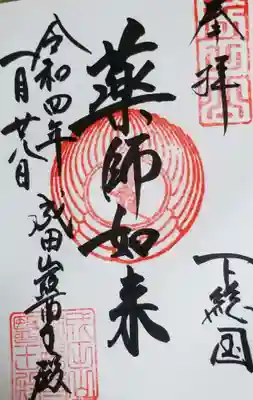 奉拝
下総国
薬師如来
令和四年
一月廿八日
成田山薬師殿